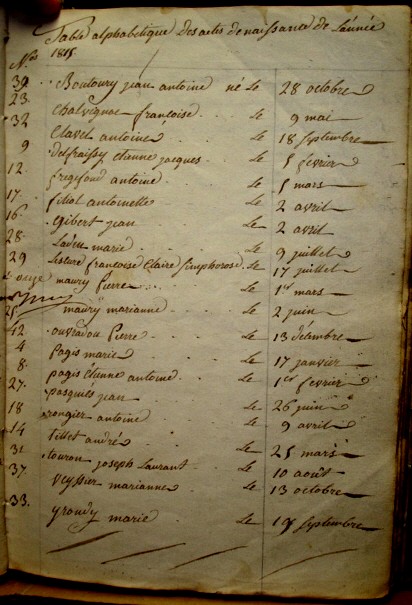 Table alphabetique des actes de naissance de L'année
Nos 1815.
39 Boutoury jean antoine né Le 28 octobre
23. Chalvignac francoise Le 9 mai
32 Clavel antoine Le 18 septembre
9 delfraissy etienne jacques Le 5 fevrier
12. antoine Le 5 mars
17. filiol antoinette Le 2 avril
16 Gibert jean Le 2 avril
28. marie Le 9 juillet
29 francoise Claire simphorose Le 17 juillet
maury Pierre Le 1er mars
25. maury marianne Le 2 juin
42 ouvradou Pierre Le 13 décembre
4 pagis marie Le 17 janvier
8. pagis etienne antoine Le 1er fevrier
27. pasquiés jean Le 26 juin
18 rongier antoine Le 9 avril
14 tillet andré Le 25 mars
31. touron joseph Laurant Le 10 août
37. veyssier marianne Le 13 octobre
33. yroudy marie Le 19 septembre